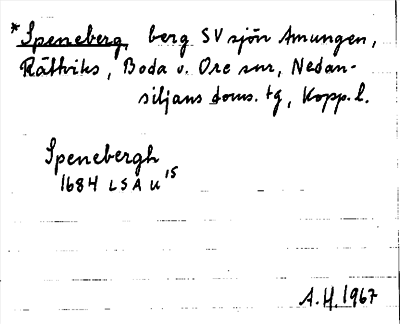 *Speneberg, berg SV sjön Amungen,
Rättviks, Boda o. Ore snr, Nedan-
siljans doms. tg, Kopp. l.
Spenebergh
1684 LSA U 15
A.H. 1967